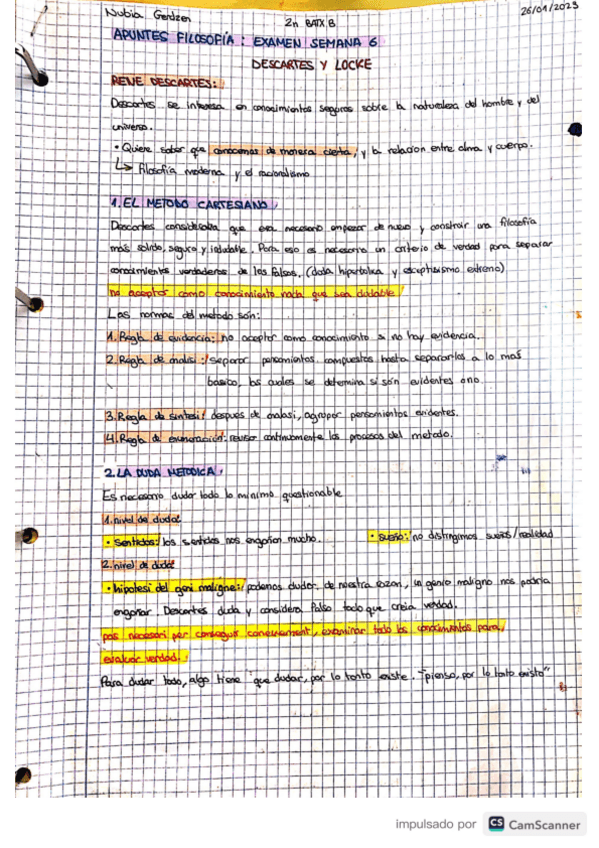 Nubia Gerdzen
2n BATX B
26/01/2023
APUNTES FILOSOFÍA: EXAMEN SEMANA 6
DESCARTES Y LOCKE
RENE DESCARTES:
Descartes se interesa en conocimientos seguros sobre la naturaleza del hombre y del
universo.
• Quiere saber que conocemos de manera cierta, y la relacion entre alma y cuerpo.
↳ Filosofía moderna y el racionalismo
1. EL METODO CARTESIANO
Descartes consideraba que era necesario empezar de nuevo y construir una filosofía
más solida, segura y indudable. Para eso es necesario un criterio de verdad para separar
conocimientos verdaderos de los falsos. (duda hiperbolica y esceptisismo extremo)
no aceptar como conocimiento nada que sea dudable!
Las normas del metodo són:
1. Regla de evidencia: no aceptar como conocimiento si no hay evidencia.
2. Regla de analisi: separar pensamientos compuestos hasta separarlos a lo más
basico, los cuales se determina si són evidentes o no.
3. Regla de sintesi: después de analasi, agrupar pensamientos evidentes.
4. Regla de enumeración: revisar continuamente los procesos del metodo.
2. LA DUDA METODICA
Es necesario dudar todo lo minimo questionable
1. nivel de duda:
• Sentidos: los sentidos nos engañan mucho.
• sueño: no distingimos sueño/realidad
2. nivel de duda:
• hipotesi del geni maligne: podemos dudar de nuestra razon, un genio maligno nos podria
engañar. Descartes duda y considera falso todo que creia verdad.
pas necesari per conseguir coneixement, examinar todo los conocimientos para
evaluar verdad.
Para dudar todo, algo tiene que dudar, por lo tanto existe. "pienso, por lo tanto existo"
impulsado por CS CamScanner